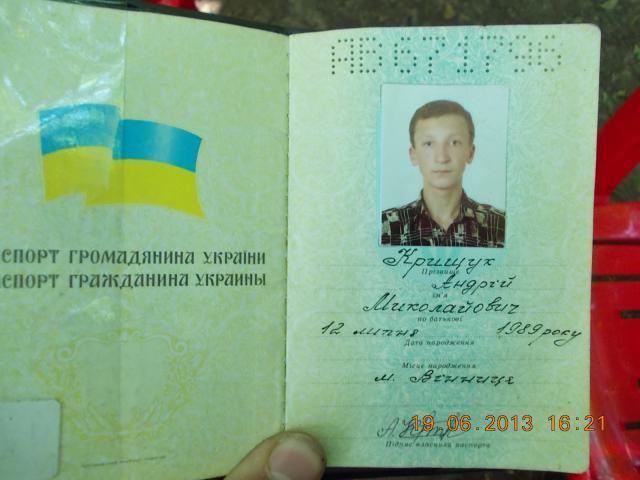 СПОРТ ГРОМАДЯНИНА УКРАЇНИ
СПОРТ ГРАЖДАНИНА УКРАИНЫ
АВ671796
Крищук
Прізвище
Андрій
Ім'я
Миколайович
по батькові
12 липня 1989 року
Дата народження
Місце народження
м. Вінниця
19.06.2013 16:21
Підпис власника паспорта